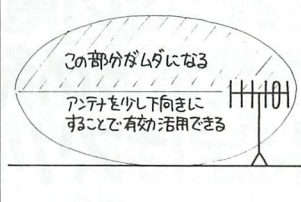 この部分がムダになる
アンテナを少し下向きに
することで有効活用できる